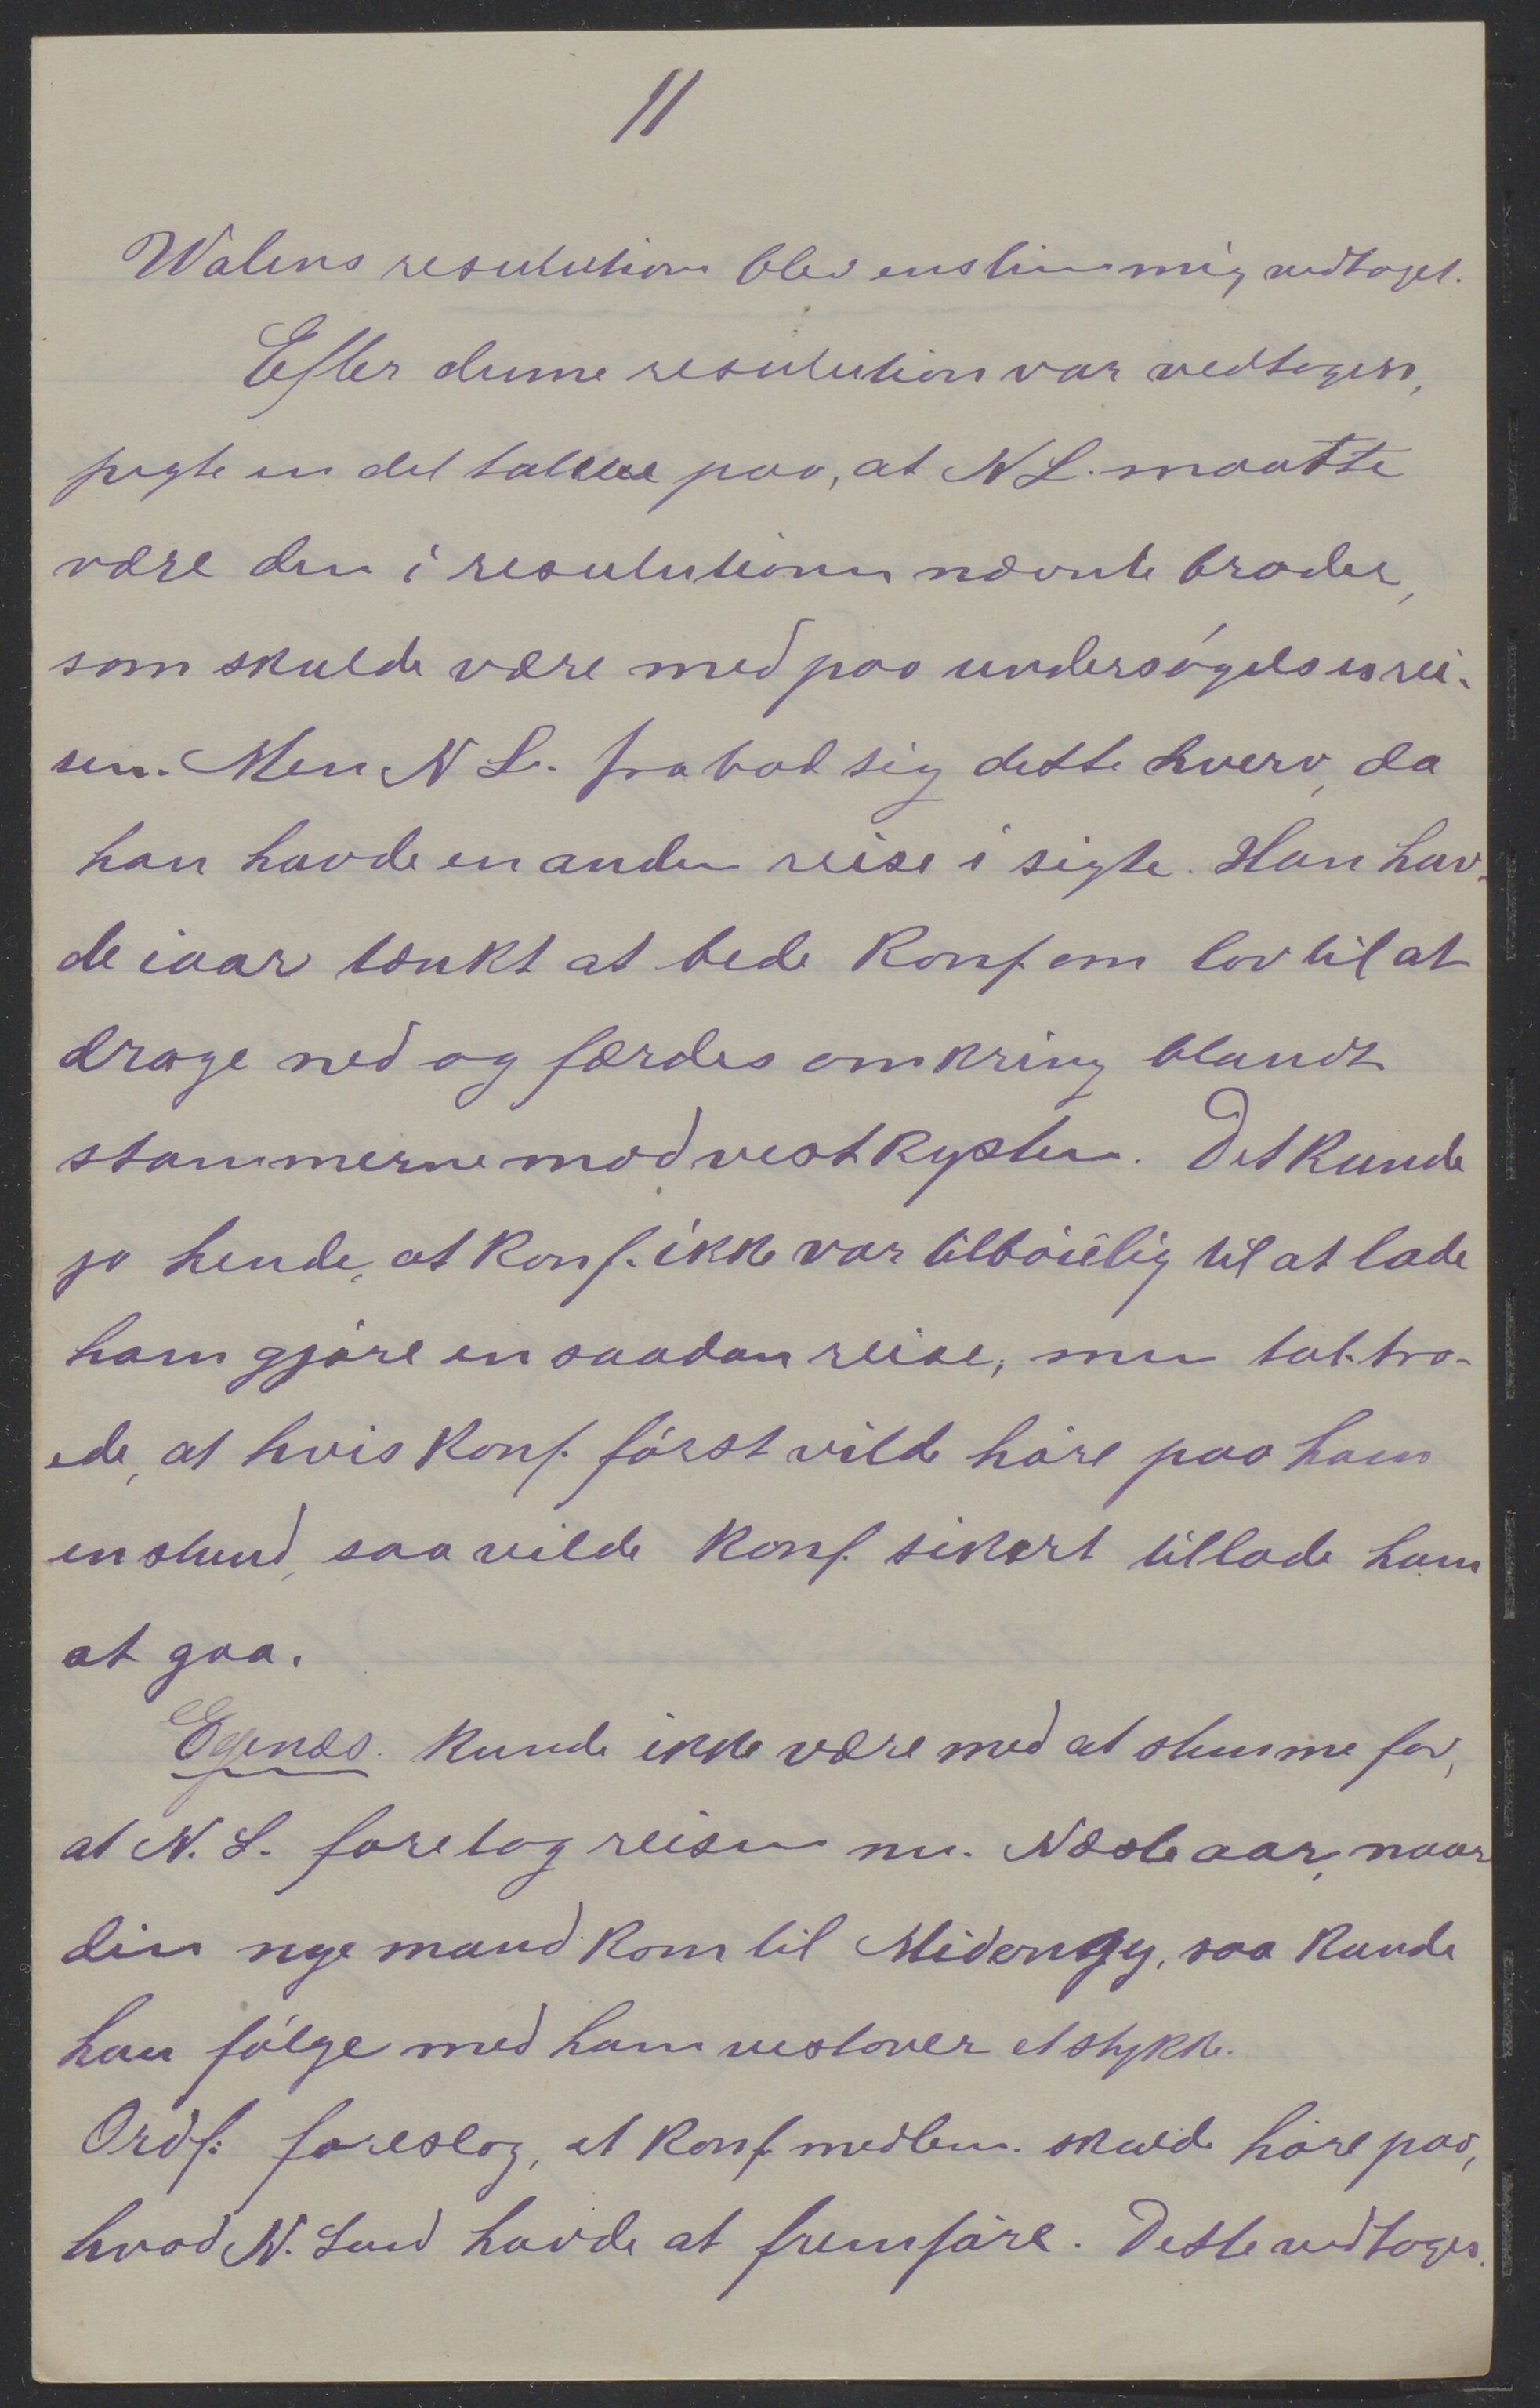 11
Walens resulution blev enstimmig vedtaget.
Efter denne resulution var vedtagen,
pegte en del talere paa, at N L. maatte
være den i resulutionen nævnte broder,
som skulde være med paa undersøgelsesrei-
sen. Men N L. frabad sig dette hverv, da
han havde en anden reise i sigte. Han hav-
de iaar tænkt at bede Konf. om lov til at
drage ned og færdes omkring blandt
stammerne mod vestkysten. Det kunde
jo hende, at Konf. ikke var tilbøielig til at lade
ham gjøre en saadan reise, men tal. tro-
ede, at hvis Konf. først vilde høre paa ham
en stund, saa vilde Konf. sikert tillade ham
at gaa.
Egenæs. kunde ikke være med at stemme for,
at N. L. foretog reisen nu. Næste aar, naar
din nye mand kom til Midongy, saa kunde
han følge med ham vestover et stykke.
Ordf: foreslog, at Konf. medlem. skulde høre paa,
hvad N. Lund havde at fremføre. Dette vedtoges.